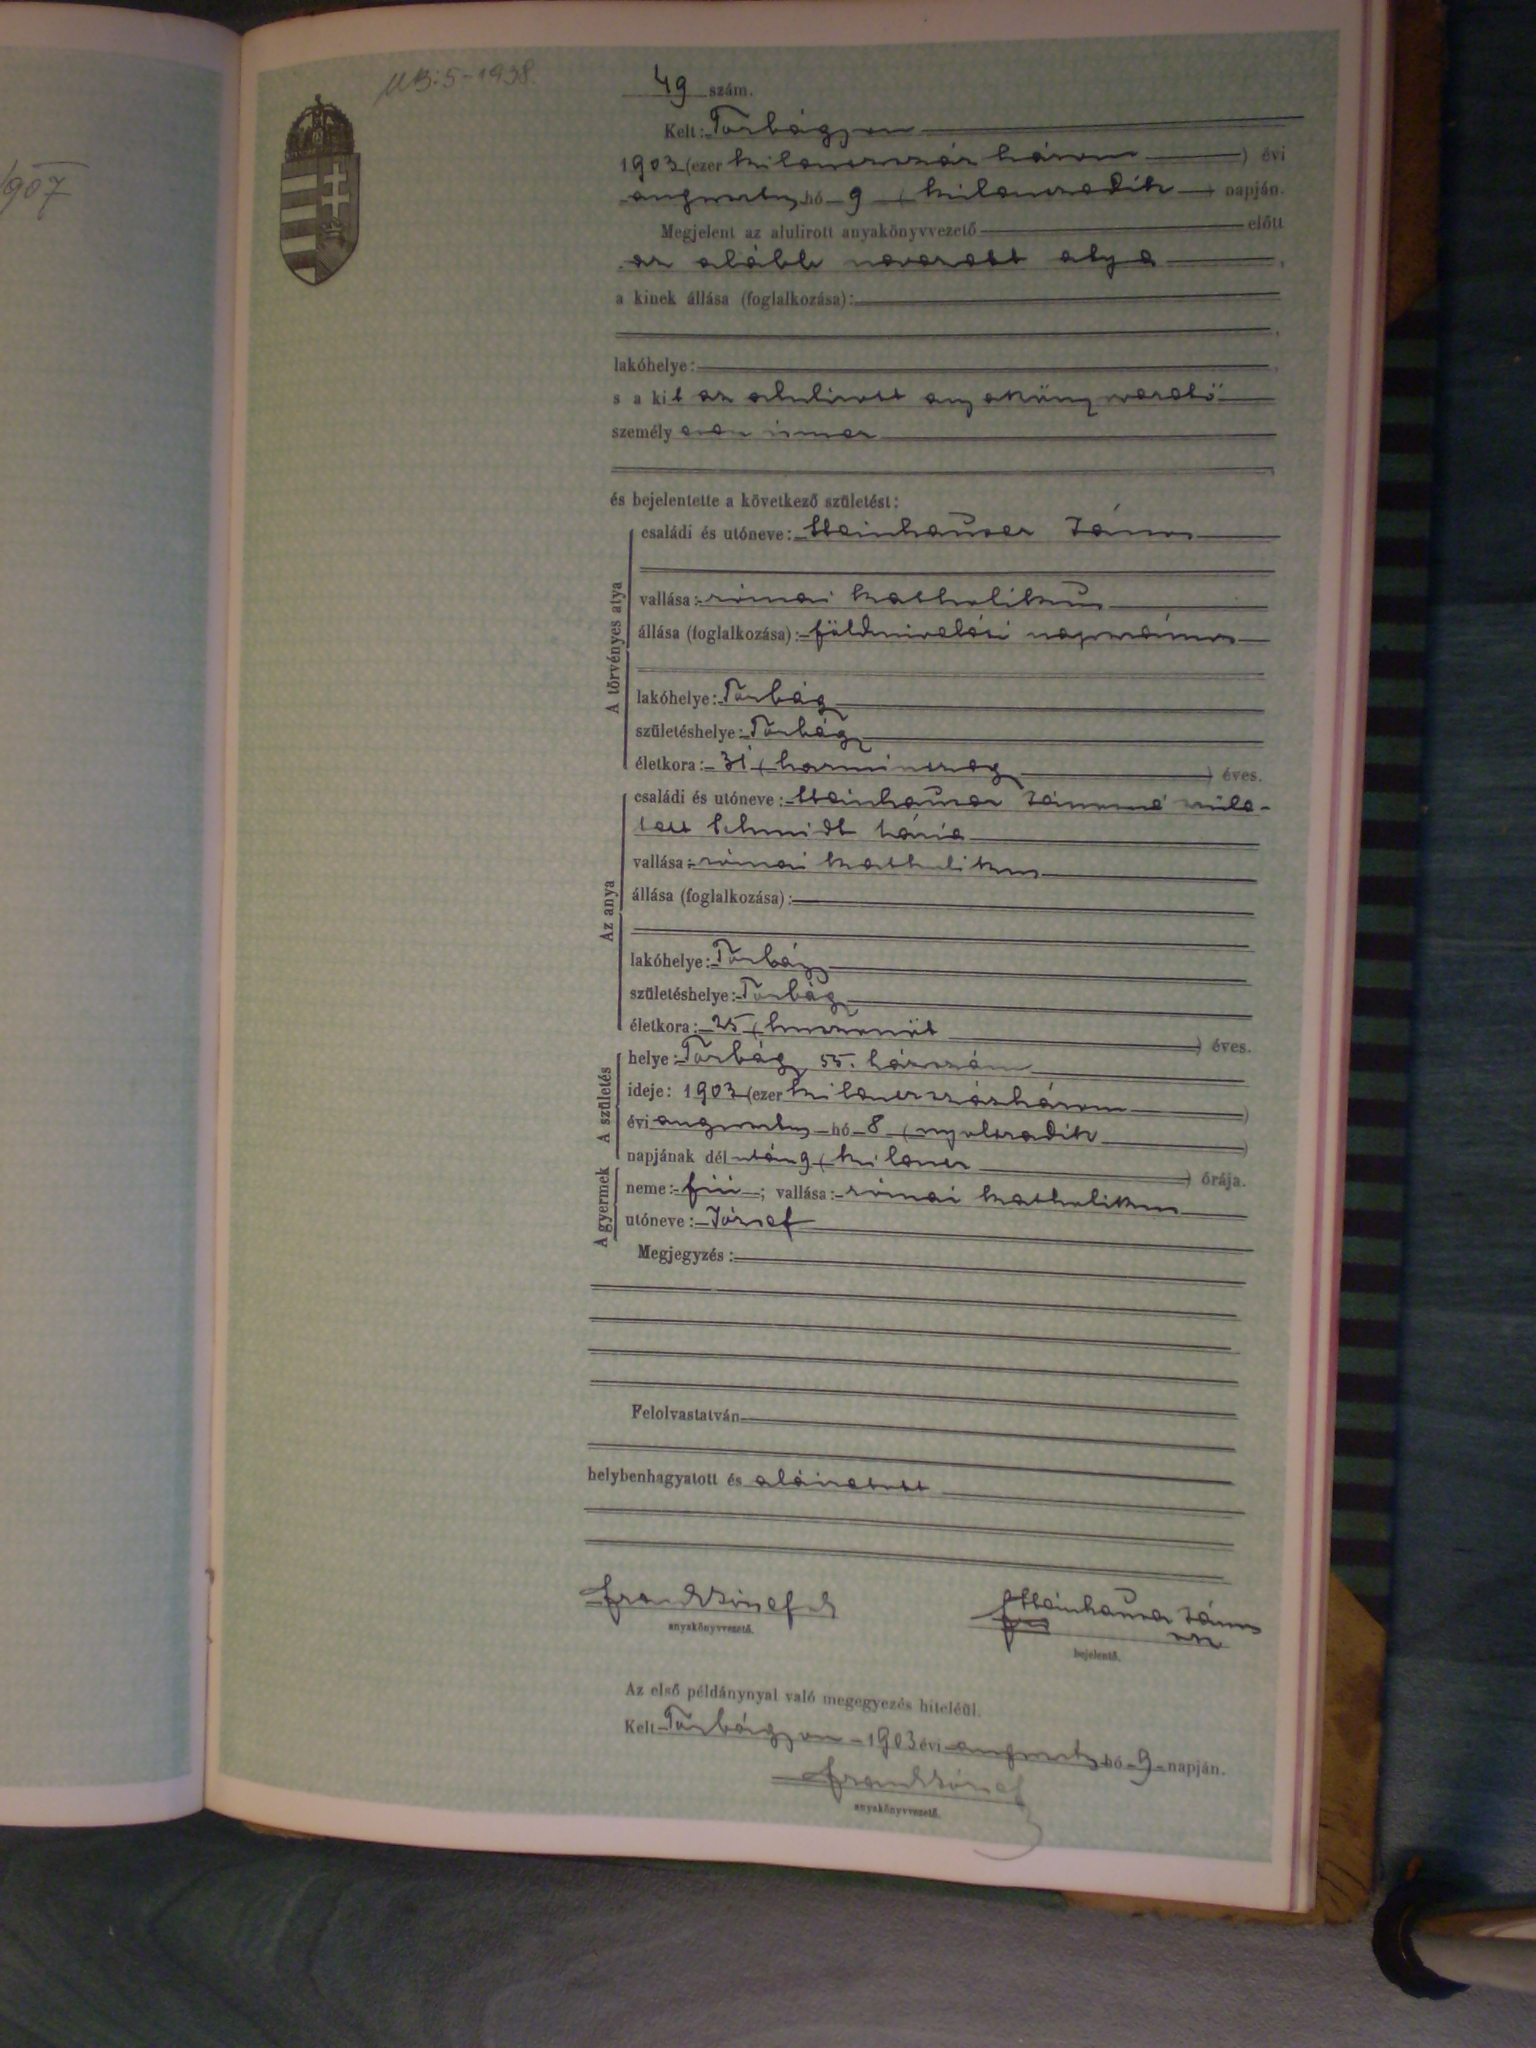 1907
MB: 5-1938.
49 szám.
Kelt: Torbágyon
1903 (ezer kilenczszáz három) évi
augusztus hó 9 (kilenczedik) napján.
Megjelent az alulirott anyakönyvvezető előtt
az alább nevezett atya,
a kinek állása (foglalkozása):
lakóhelye:
s a kit az alulirott anyakönyvvezető
személyesen ismer
és bejelentette a következő születést:
A törvényes atya
családi és utóneve: Steinhauser János
vallása: római katholikus
állása (foglalkozása): földmivelési napszámos
lakóhelye: Torbágy
születéshelye: Torbágy
életkora: 31 (harminczegy) éves.
Az anya
családi és utóneve: Steinhauser Jánosné szüle-
tett Schmidt
vallása: római katholikus
állása (foglalkozása):
lakóhelye: Torbágy
születéshelye: Torbágy
életkora: 25 (huszonöt) éves.
A születés
helye: Torbágy 55. házszám
ideje: 1903 (ezer kilenczszázhárom)
évi augusztus hó 8 (nyolczadik)
napjának délután 9 (kilencz) órája.
A gyermek
neme: fiú; vallása: római katholikus
utóneve: József
Megjegyzés:
Felolvastatván
helybenhagyatott és aláiratott
Frank József
anyakönyvvezető.
Steinhauser János
bejelentő.
Az első példánynyal való megegyezés hiteléül.
Kelt Torbágyon 1903 évi augusztus hó 9 napján.
Frank József
anyakönyvvezető.